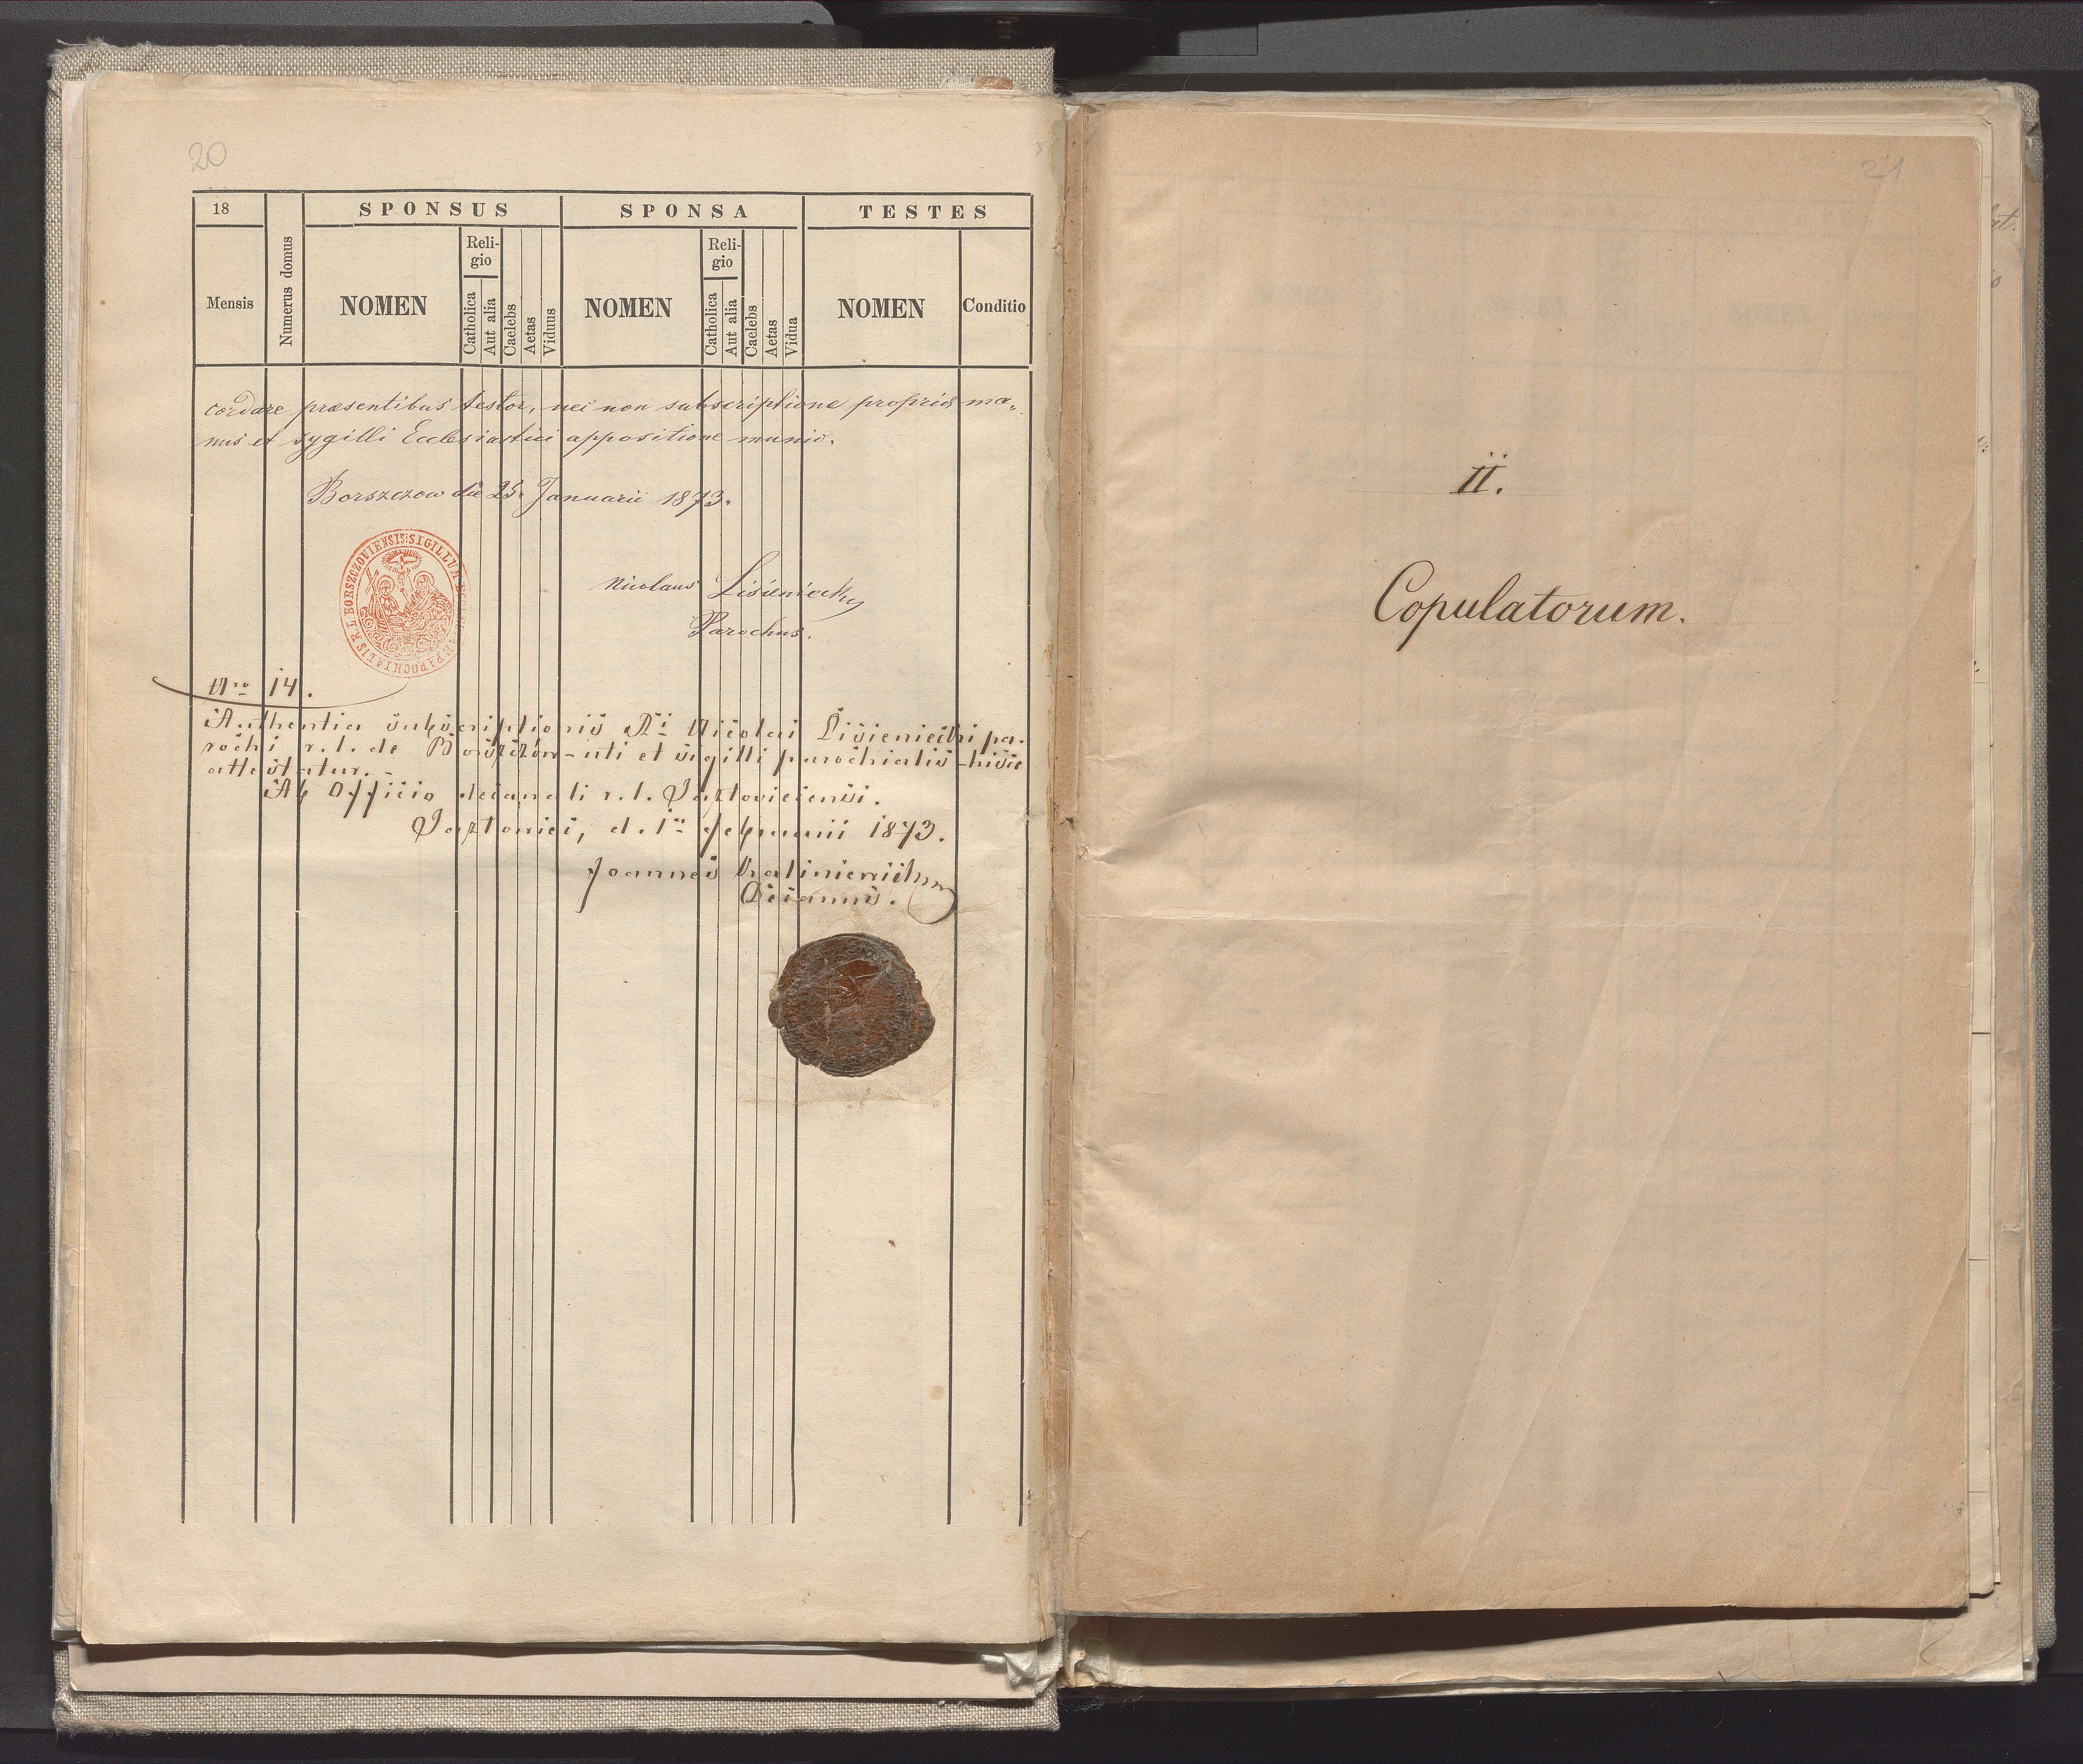 20
18
SPONSUS
SPONSA
TESTES
Mensis
Numerus domus
NOMEN
Reli-
gio
Catholica
Aut alia
Caelebs
Aetas
Viduus
NOMEN
Reli-
gio
Catholica
Aut alia
Caelebs
Aetas
Vidua
NOMEN
Conditio
cordare præsentibus testor, nec non subscriptione propriæ ma„
nus et sygilli Ecclesiastici appositione munio.
Borszczow die 25. Januarii 1873.
SIGILLUM PAROCHIALIS R. L. BORSZCZOVIENSIS
Nicolaus Lisieniecky
Parochus.
Nro 14.
Authentia subscriptionis Ri Nicolai Lisieniecki pa-
rochi r. l. de Borszczów - uti et sigilli parochialis - hisce
attestatur. -
Ab Officio decanali r. l. Jazloviecensi.
Jazlowiec, d. 1a Februarii 1873.
Joannes
Decanus.
21
II.
Copulatorum.